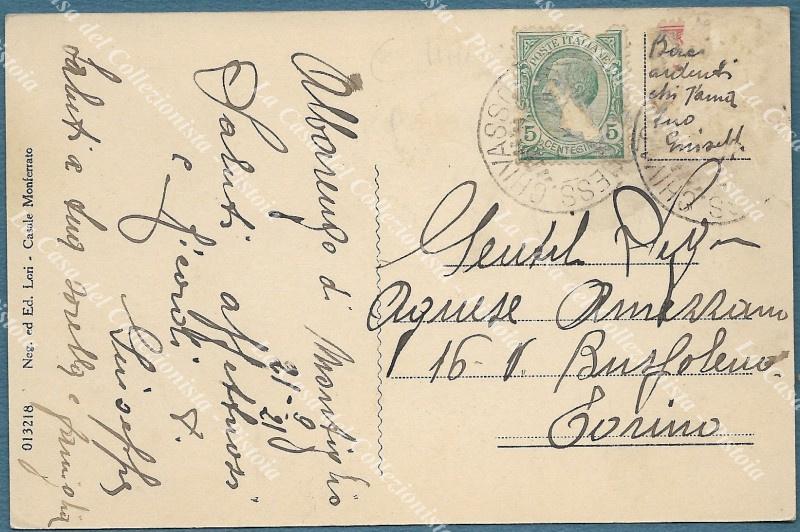 Albarengo di Montiglio
21-9-21
Saluti affettuosi
e ricordi
Giuseppe
Saluti a sua sorella e famiglia
013218 Neg. ed Ed. Lori - Casale Monferrato
POSTE ITALIANE
5 CENTESIMI 5
CHIVASSO
Baci
ardenti
chi t'ama
tuo
Gentil Sig.na
Agnese Amezzano
16 V. Bussoleno
Torino
La Casa del Collezionista - Pistoia